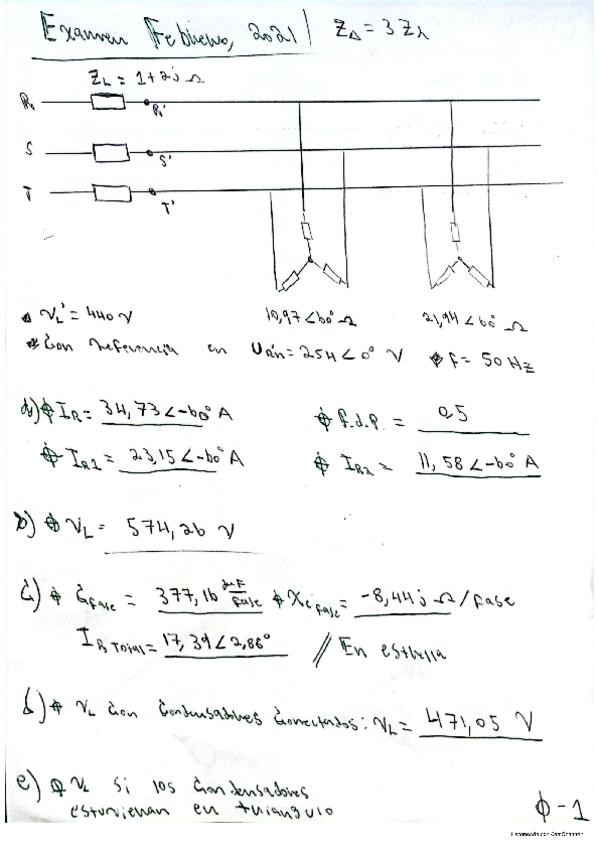 Examen Febrero, 2021 Z△ = 3 Zλ
ZL = 1+2j Ω
R R'
S S'
T T'
VL' = 440 V 10,97<60° Ω 21,94<60° Ω
Con referencia en UR'n = 254<0° V f = 50 Hz
a) IR = 34,73<-60° A f.d.p. = 0,5
IR1 = 23,15<-60° A IR2 = 11,58<-60° A
b) VL = 574,26 V
c) Cfase = 377,16 μF/fase Xc fase = -8,44j Ω/fase
IR Total = 17,39<2,86° // En estrella
d) VL con condensadores conectados: VL = 471,05 V
e) VL si los condensadores
estuvieran en triangulo
φ-1
Escaneado con CamScanner